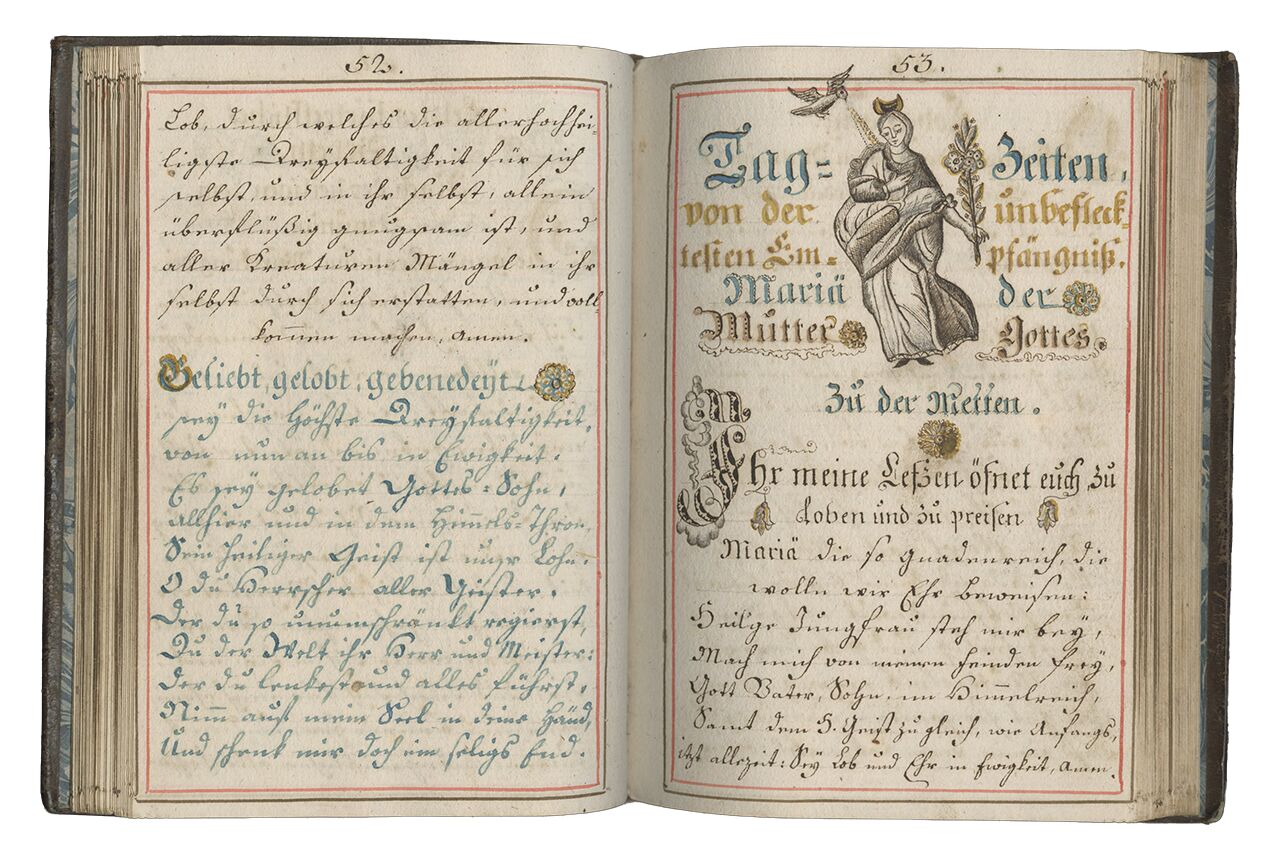 52.
Lob, durch welches die allerhochhei-
ligste Dreyfaltigkeit für sich
selbst, und in ihr selbst, allein
überflüßig gnugsam ist, und
aller Kreaturen Mängel in ihr
selbst durch sich erstatten, und voll-
kommen machen, amen.
Geliebt, gelobt, gebenedeyt
sey die Höchste Dreyfaltigkeit,
von nun an bis in Ewigkeit.
Es sey gelobet Gottes-Sohn,
allhier und in dem Himmels-Thron,
Sein heiliger Geist ist unser Lohn.
O du Herrscher aller Geister.
Der du so unumschränkt regierst,
Du der Welt ihr Herr und Meister:
Der du lenkest und alles führst,
Nimm auf mein Seel in deine Händ,
Und schenk mir doch ein seligs End.
53.
Tag= Zeiten,
von der unbefleck-
testen Em= pfängniß.
Mariä der
Mutter Gottes.
Zu der Metten.
Ihr meine Lefzen öfnet euch, zu
Loben und zu preisen
Mariä die so gnadenreich, die
wolln wir Ehr beweisen:
Heilge Jungfrau steh mir bey,
Mach mich von meinen feinden frey,
Gott Vater, Sohn im Himmelreich,
Samt dem H. Geist zu gleich, wie Anfangs,
itzt allezeit: Sey Lob und Ehr in Ewigkeit, amen.